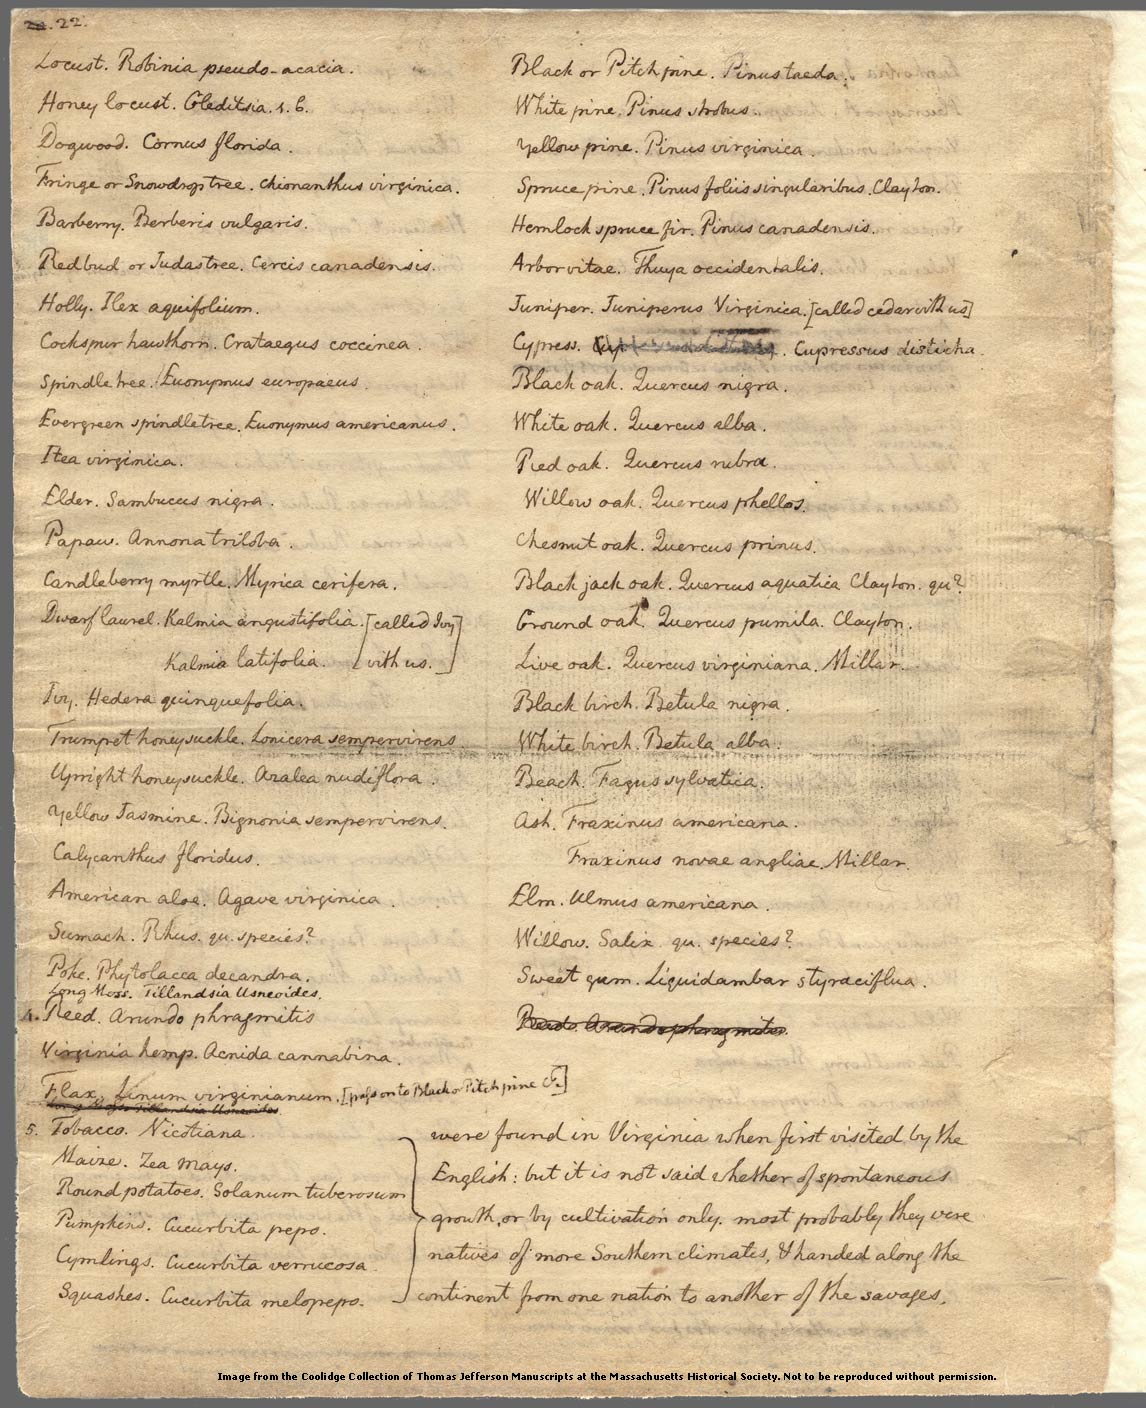 22.
Locust. Robinia pseudo-acacia.
Honey locust. Gleditsia. 1. 6.
Dogwood. Cornus florida.
Fringe or Snowdrop tree. Chionanthus virginica.
Barberry. Berberis vulgaris.
Redbud or Judas tree. Cercis canadensis.
Holly. Ilex aquifolium.
Cockspur hawthorn. Crataegus coccinea.
Spindle tree. Euonymus europaeus.
Evergreen spindletree. Euonymus americanus.
Itea virginica.
Elder. Sambucus nigra.
Papaw. Annona triloba.
Candleberry myrtle. Myrica cerifera.
Dwarf laurel. Kalmia angustifolia. [called Ivy
Kalmia latifolia. with us.]
Ivy. Hedera quinquefolia.
Trumpet honeysuckle. Lonicera sempervirens.
Upright honeysuckle. Azalea nudiflora.
Yellow Jasmine. Bignonia sempervirens.
Calycanthus floridus.
American aloe. Agave virginica.
Sumach. Rhus. qu. species?
Poke. Phytolacca decandra.
Long Moss. Tillandsia Usneoides.
4. Reed. Arundo phragmitis
Virginia hemp. Acnida cannabina.
Flax. Linum virginianum. [pass on to Black or Pitch pine &c.]
Long Moss. Tillandsia Usneoides.
Black or Pitch pine. Pinus taeda.
White pine. Pinus strobus.
Yellow pine. Pinus virginica.
Spruce pine. Pinus foliis singularibus. Clayton.
Hemlock spruce fir. Pinus canadensis.
Arbor vitae. Thuya occidentalis.
Juniper. Juniperus Virginica. [called cedar with us]
Cypress. Cupressus disticha.
Black oak. Quercus nigra.
White oak. Quercus alba.
Red oak. Quercus rubra.
Willow oak. Quercus phellos.
Chesnut oak. Quercus prinus.
Black jack oak. Quercus aquatica Clayton. qu?
Ground oak. Quercus pumila. Clayton.
Live oak. Quercus virginiana. Millar.
Black birch. Betula nigra.
White birch. Betula alba.
Beach. Fagus sylvatica.
Ash. Fraxinus americana.
Fraxinus novae angliae. Millar.
Elm. Ulmus americana.
Willow. Salix. qu. species?
Sweet gum. Liquidambar styraciflua.
Reed. Arundo phragmitis.
5. Tobacco. Nicotiana.
Maize. Zea mays.
Round potatoes. Solanum tuberosum
Pumpkins. Cucurbita pepo.
Cymlings. Cucurbita verrucosa.
Squashes. Cucurbita melopepo.
were found in Virginia when first visited by the
English: but it is not said whether of spontaneous
growth, or by cultivation only. most probably they were
natives of more Southern climates, & handed along the
continent from one nation to another of the savages.
Image from the Coolidge Collection of Thomas Jefferson Manuscripts at the Massachusetts Historical Society. Not to be reproduced without permission.